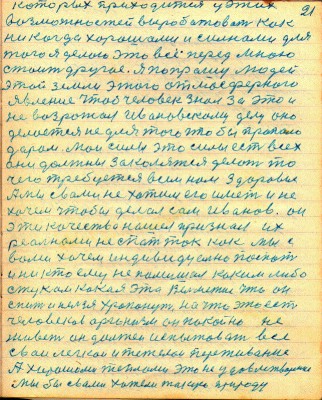 21
которых приходится у этих
возможностей выработовать как
никогда хорошими и сильными для
того я делаю это всё перед мною
стоит другая. я попрашу людей
этой земли этого атмосферного
явление чтоб человек знал за это и
не возрожал Ивановскому делу оно
делается не для того это бы пропало
даром мои силы это силы ест всех
они должны закалятся делат то
чего требуется всем нам здоровье
А мы с вами не хотим его имет и не
хочем чтобы делал сам Иванов. он
эти качества нашел признал их
реалными не стал так как мы с
вами хочем индивидуално пожит
и никто ему не помишал каким либо
стуком какая эта
спит и нелзя храпонут, на что это ест
человеков арганизм он покойно не
живет он должен испытоват все
сваи легкои и тяжелои переживание
А хорошими тепломи это не удовлетворение
мы бы с вами хотели такую природу